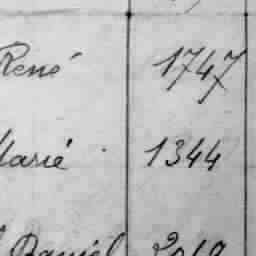 René 1747
Marié 1344
Daniel